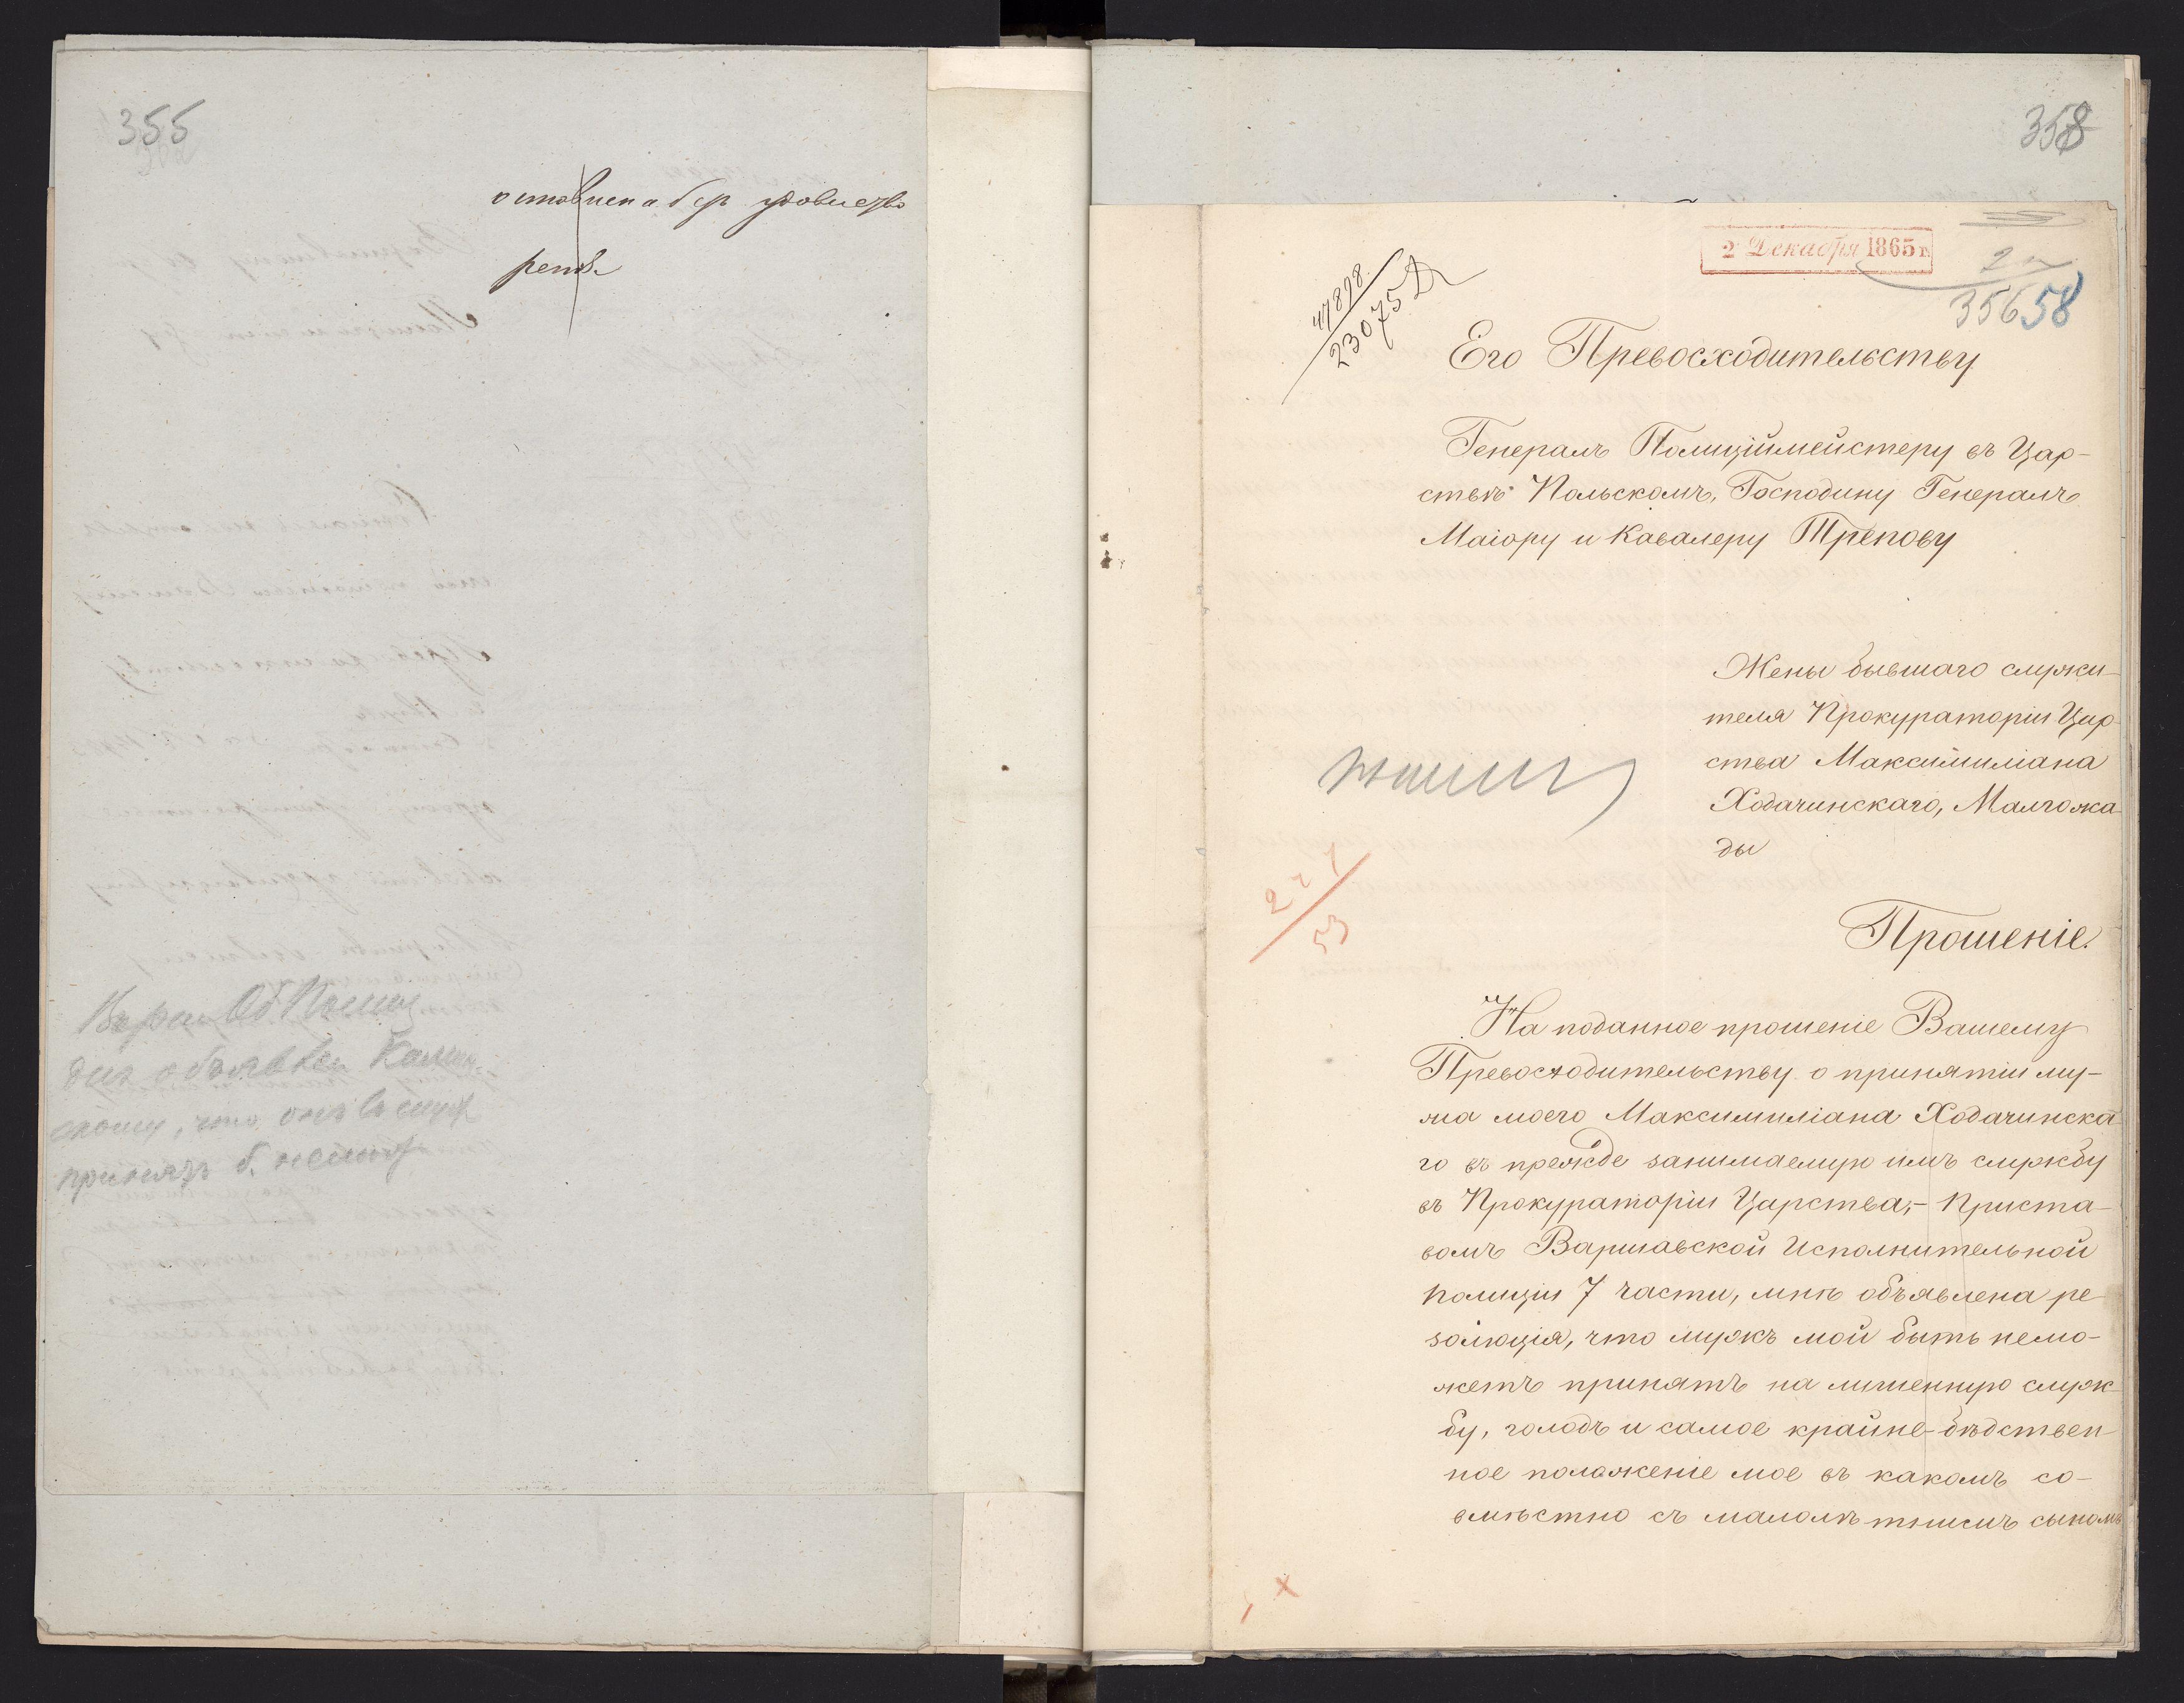 355
оставлена без удовлетво
рен.
объявлен
что онъ въ служ
принятъ б. не мож
358
2 Декабря 1865 г.
2
35658
47898
23075
Его Превосходительству
Генералъ Полиціймейстеру въ Цар-
ствѣ Польскомъ, Господину Генералъ
Маіору и Кавалеру Трепову
Жены бывшаго служи-
теля Прокураторіи Цар-
ства Максимиліана
Ходачинскаго, Малгожа-
ды
53
Прошеніе.
На поданное прошеніе Вашему
Превосходительству о принятіи му-
жа моего Максимиліана Ходачинска-
го въ прежде занимаемую имъ службу
въ Прокураторіи Царства,- Приста-
вомъ Варшавской Исполнительной
Полиціи 7 части, мнѣ объявлена ре-
золюція, что мужъ мой быть немо-
жетъ принятъ на лишенную служ-
бу, голодъ и самое крайне-бѣдствен-
ное положеніе мое въ какомъ со-
вмѣстно съ малолѣтнимъ сыномъ